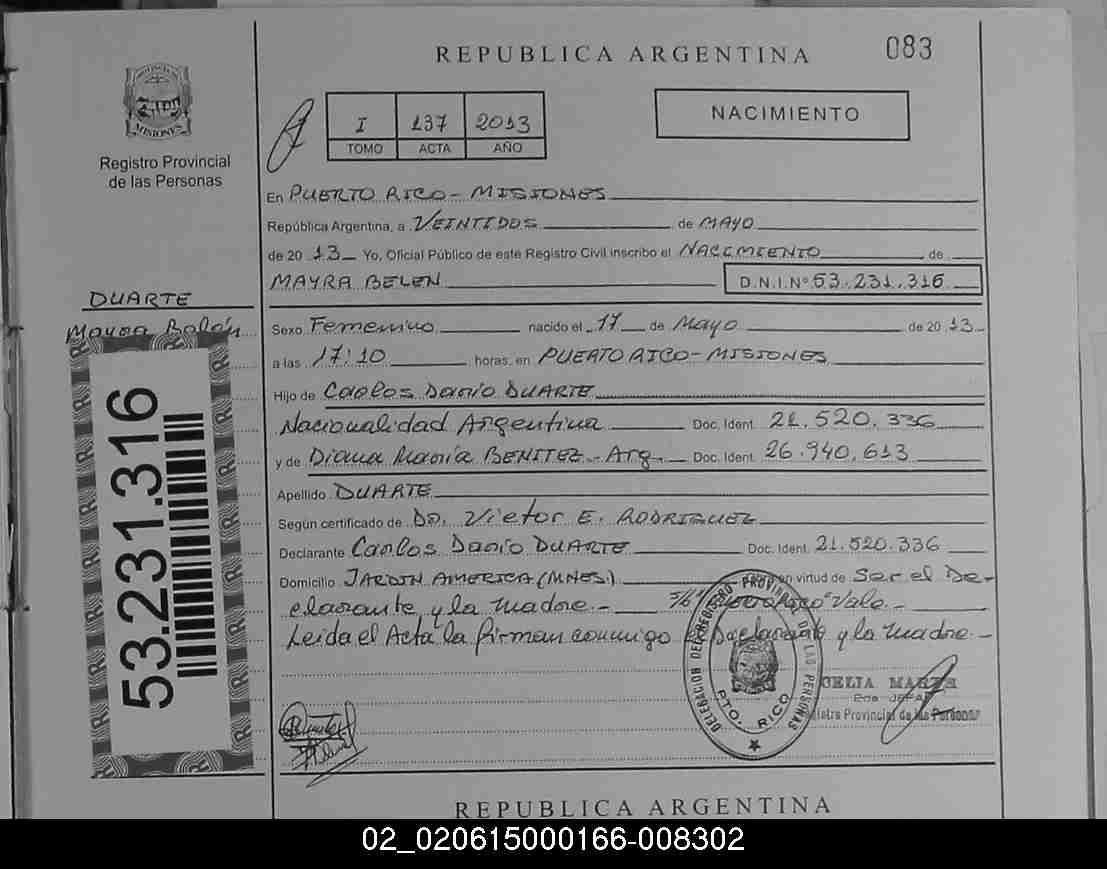 REPUBLICA ARGENTINA
083
PROVINCIA DE
MISIONES
Registro Provincial
de las Personas
I 137 2013
TOMO ACTA AÑO
NACIMIENTO
En PUERTO RICO - MISIONES
República Argentina, a VEINTIDOS de MAYO
de 20 13 Yo, Oficial Público de este Registro Civil inscribo el NACIMIENTO de
MAYRA BELEN D.N.I.Nº 53.231.316
DUARTE
Mayra Belén
53.231.316
Sexo Femenino nacido el 17 de Mayo de 20 13
a las 17:10 horas, en PUERTO RICO - MISIONES
Hijo de Carlos Dario DUARTE
Nacionalidad Argentina Doc. Ident. 21.520.336
y de Diana Maria BENITEZ - Arg. Doc. Ident. 26.940.613
Apellido DUARTE
Según certificado de Dr. Victor E. RODRIGUEZ
Declarante Carlos Dario DUARTE Doc. Ident. 21.520.336
Domicilio JARDIN AMERICA (MNES.) en virtud de Ser el De-
clarante y la madre.- Vale.-
Leida el Acta la firman conmigo el Declarante y la madre.-
DELEGACION DEL REGISTRO PROVINCIAL DE LAS PERSONAS
PTO. RICO
CELIA MARTA
Registro Provincial de las Personas
REPUBLICA ARGENTINA
02_020615000166-008302